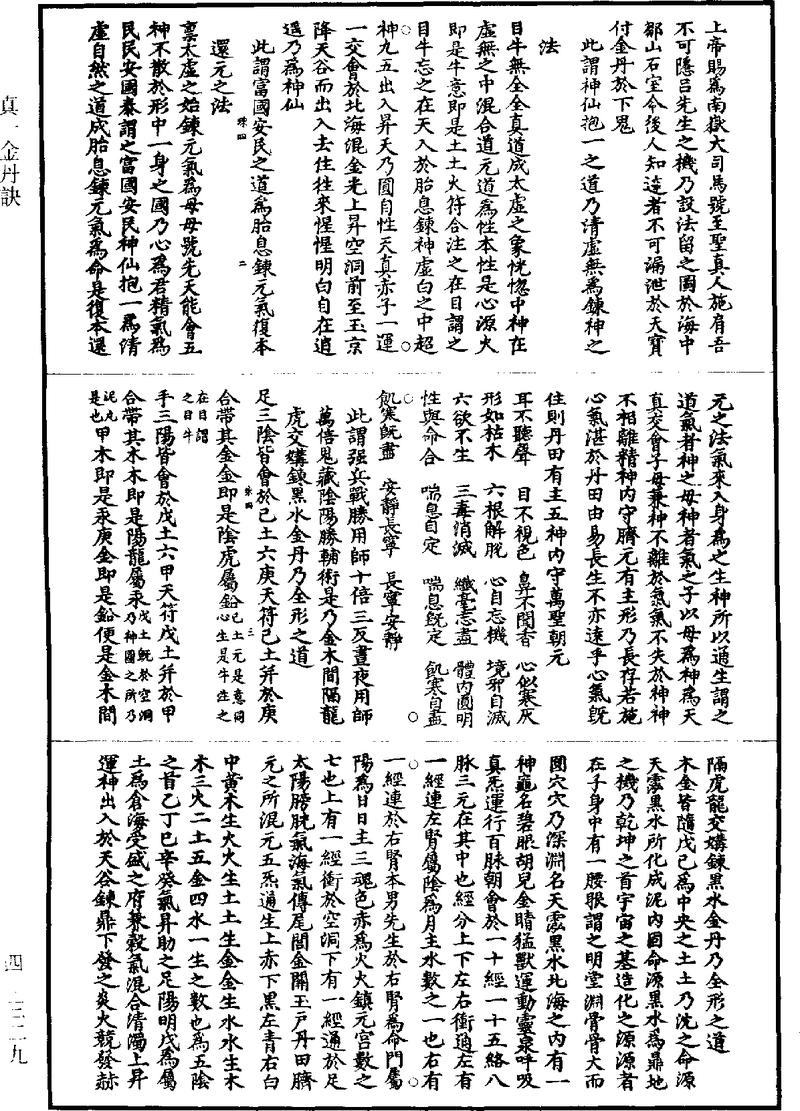 上帝賜為南嶽大司馬號至聖真人施肩吾
不可隱呂先生之機乃設法留之圖於海中
鄒山石室令後人知達者不可漏泄於天寶
付金丹於下鬼
此謂神仙抱一之道乃清虛無為鍊神之
法
目牛無全全真道成太虛之象恍惚中神在
虛無之中混合道元道為性本性是心源火
即是牛意即是土土火符合注之在目謂之
目牛忘之在天入於胎息鍊神虛白之中超
神九五出入昇天乃圓自性天真赤子一運
一交會於北海混金光上昇空洞前至玉京
降天谷而出入去住往來惺惺明白自在逍
遥乃為神仙
此謂富國安民之道為胎息鍊元氣復本
珠四 二
還元之法
禀太虛之始鍊元氣為母母號先天能會五
神不散於形中一身之國乃心為君精氣為
民民安國泰謂之富國安民神仙抱一為清
虛自然之道成胎息鍊元氣為命是復本還
真一金丹訣
元之法氣來入身為之生神所以通生謂之
道氣者神之母神者氣之子以母為神為天
真交會子母兼神不離於氣氣不失於神神
不相離精神內守臍元有主形乃長存若施
心氣湛於丹田由易長生不亦達乎心氣既
住則丹田有主五神內守萬聖朝元
耳不聽聲 目不視色 鼻不聞香 心似寒灰
形如枯木 六根解脫 心自忘機 境邪自滅
六欲不生 三毒消滅 纖毫忘盡 體內圓明
性與命合 喘息自定 喘息既定 飢寒自盡
飢寒既盡 安靜長寧 長寧安靜
此謂强兵戰勝用師十倍三反晝夜用師
萬倍鬼藏陰陽勝輔術是乃金木間隔龍
虎交媾鍊黑水金丹乃全形之道
足三陰皆會於己土六庚天符己土并於庚
珠四 三
合帶其金金即是陰虎屬鉛己土元是意同心生是牛注之
在目謂之目牛
手三陽皆會於戊土六甲天符戊土并於甲
合帶其木木即是陽龍屬汞戊土既於空洞乃神園之所乃
泥丸是也甲木即是汞庚金即是鉛便是金木間
隔虎龍交媾鍊黑水金丹乃全形之道
木金皆隨戊己為中央之土土乃沈之命源
天霐黑水所化成泥內固命源黑水為鼎地
之機乃乾坤之首宇宙之基造化之源源者
在子身中有一腰眼謂之明堂淵骨骨大而
圓穴穴乃深淵名天霐黑水北海之內有一
神龜名碧眼胡兒金睛猛獸運動靈泉呼吸
真炁運行百脉朝會於一十經一十五絡八
脉三元在其中也經分上下左右衝適左有
一經連左腎屬陰為月主水數之一也右有
一經連於右腎本男先生於右腎為命門屬
陽為日日主三魂色赤為火火鎮元宫數之
七也上有一經衝於空洞下有一經通於足
太陽膀胱氣海氣傳尾閭金關玉戶丹田臍
元之所混元五炁通生上赤下黑左青右白
中黃木生火火生土土生金金生水水生木
木三火二土五金四水一生之數也為五陰
之首乙丁己辛癸氣昇助之足陽明戊為屬
土為倉海受盛之府兼榖氣混合清濁上昇
運神出入於天谷鍊鼎下發之炎火競發赫
四 — 三二九